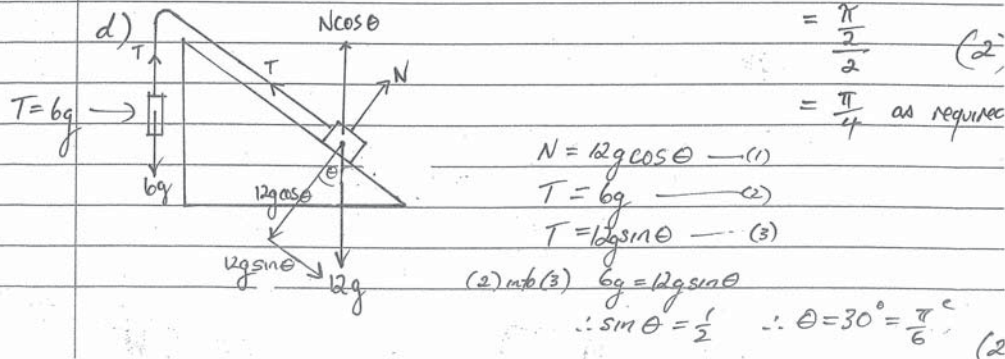 d)
Ncosθ
T
T
N
T = 6g
6g
θ
12gcosθ
12gsinθ
12g
= π/2 / 2 (2)
= π/4 as required
N = 12gcosθ —(1)
T = 6g —(2)
T = 12gsinθ —(3)
(2) into (3) 6g = 12gsinθ
∴ sinθ = 1/2 ∴ θ = 30° = π/6 ᶜ
(2